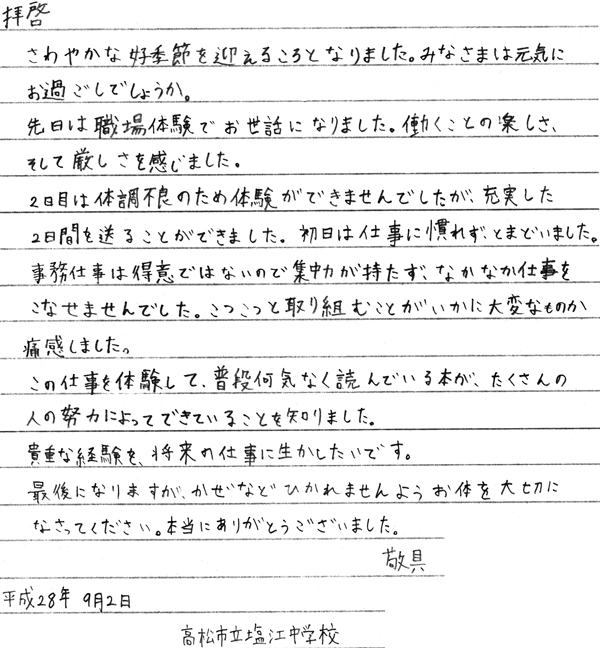 拝啓
さわやかな好季節を迎えるころとなりました。みなさまは元気に
お過ごしでしょうか。
先日は職場体験でお世話になりました。働くことの楽しさ、
そして厳しさを感じました。
2日目は体調不良のため体験ができませんでしたが、充実した
2日間を送ることができました。初日は仕事に慣れず、とまどいました。
事務仕事は得意ではないので集中力が持たず、なかなか仕事を
こなせませんでした。こつこつと取り組むことがいかに大変なものか
痛感しました。
この仕事を体験して、普段何気なく読んでいる本が、たくさんの
人の努力によってできていることを知りました。
貴重な経験を、将来の仕事に生かしたいです。
最後になりますが、かぜなどひかれませんようお体を大切に
なさってください。本当にありがとうございました。
敬具
平成28年 9月2日
高松市立塩江中学校